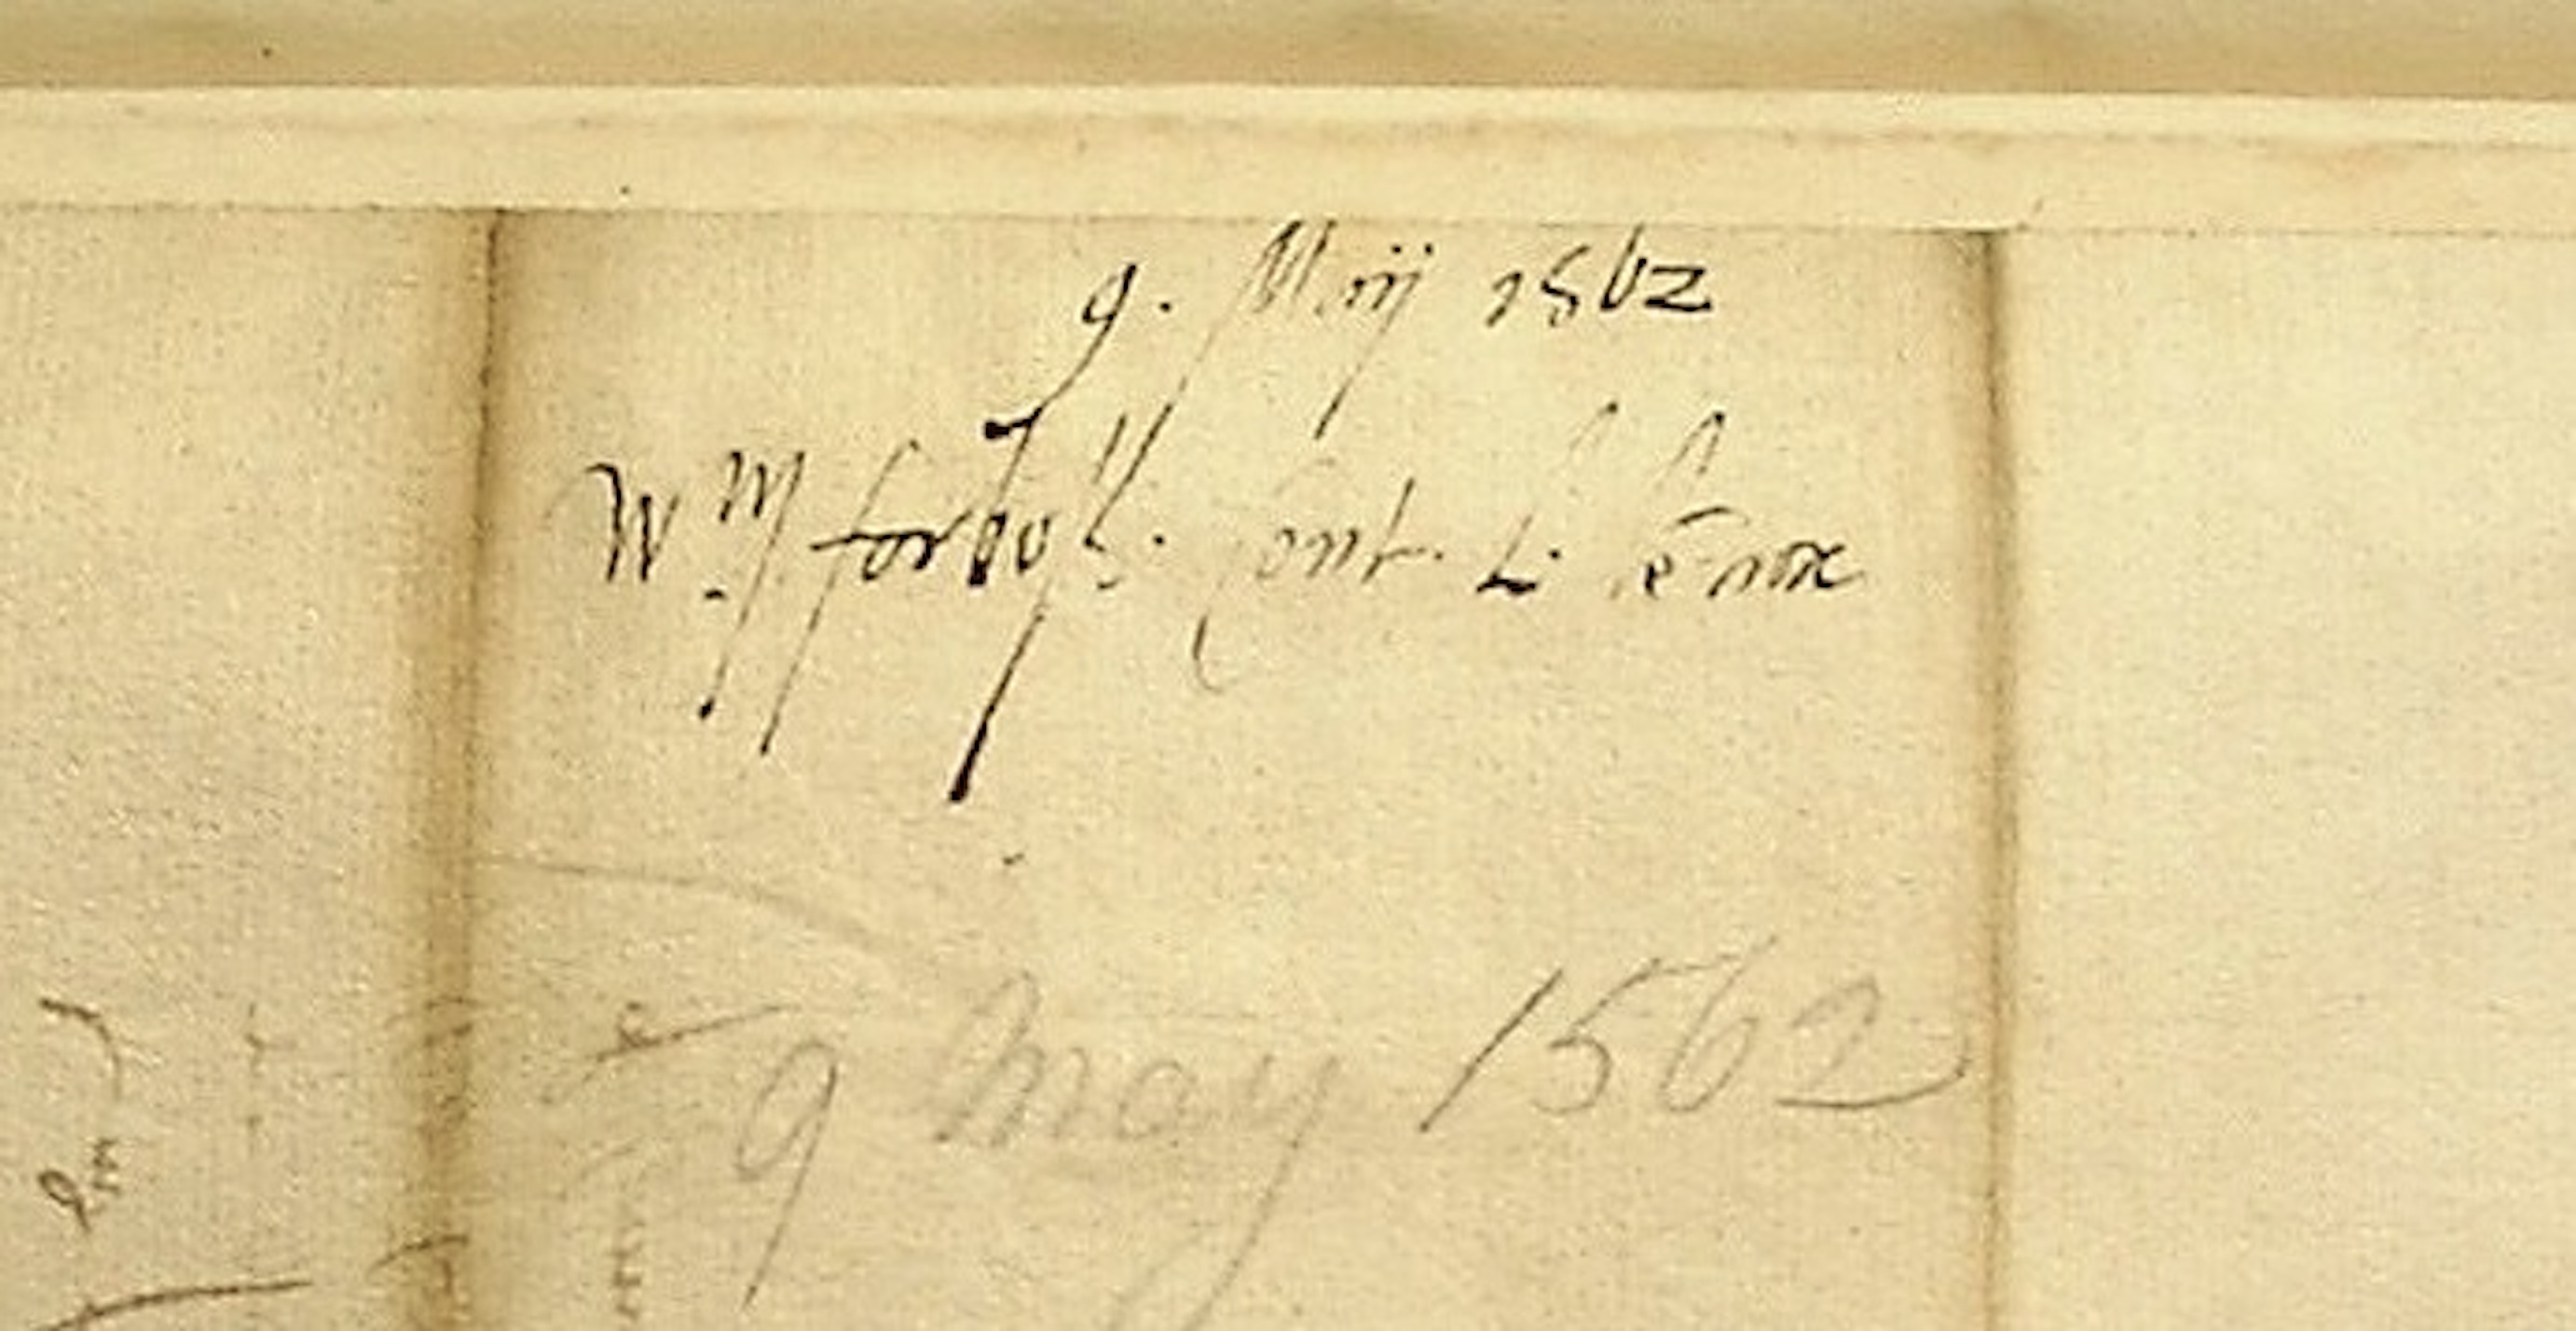 9. Maij 1562
Wm forbess. cont. L. lēnox
9 May 1562